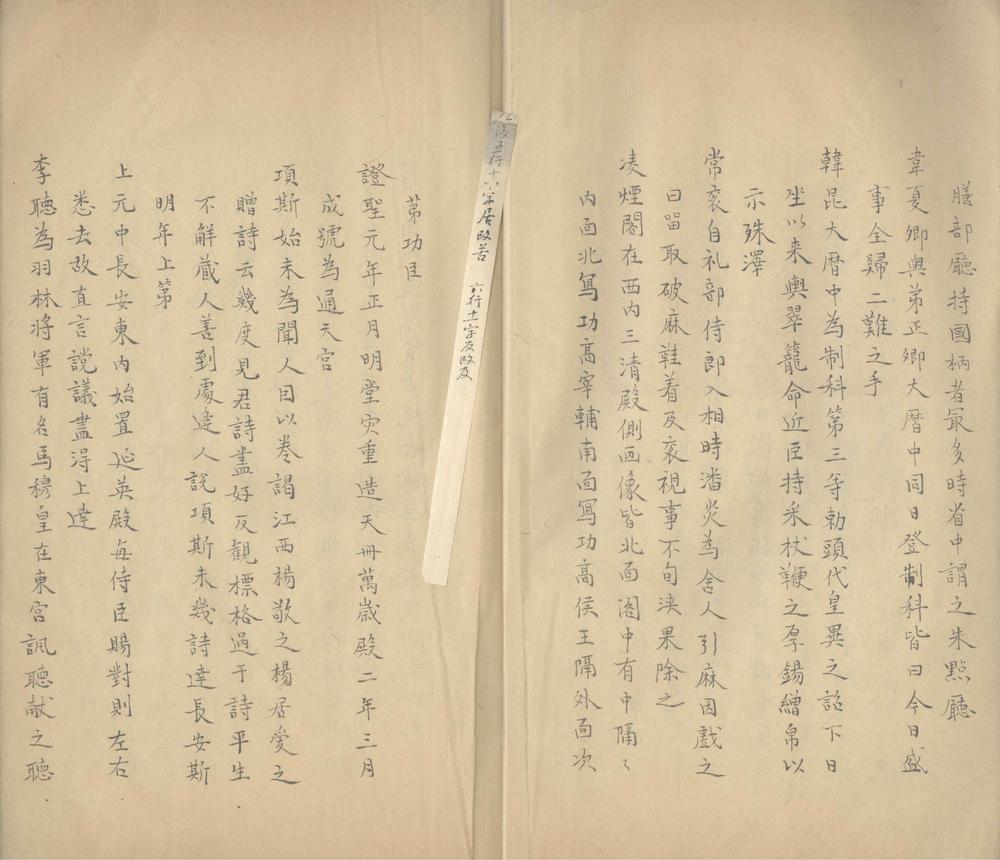 膳部廳持國柄者冣多時省中謂之朱㸃廳
韋夏卿與弟正卿大曆中同日登制科皆曰今日盛
事全歸二難之手
韓昆大曆中為制科第三等勅頭代皇異之詔下日
坐以来輿翠籠命近臣持采杖鞭之厚錫繒帛以
示殊澤
常衮自礼部侍郎入相時潘炎為舍人引麻因戲之
曰留取破麻鞋着及衮視事不旬浹果除之
凌煙閣在西内三清殿側画像皆北面閣中有中隔〻
内面北寫功高宰輔南面寫功高侯王隔外面次
後五行十六字居改若
六行十一字反改及
第功臣
證聖元年正月明堂灾重造天冊萬歲殿二年三月
成號為通天宫
項斯始未為聞人因以卷謁江西楊敬之楊居愛之
贈詩云幾度見君詩盡好反觀標格過于詩平生
不解藏人善到處逢人說項斯未幾詩達長安斯
明年上第
上元中長安東内始置延英殿每侍臣賜對則左右
悉去故直言讜議盡淂上達
李聽為羽林將軍有名馬穆皇在東宫諷聽献之聽